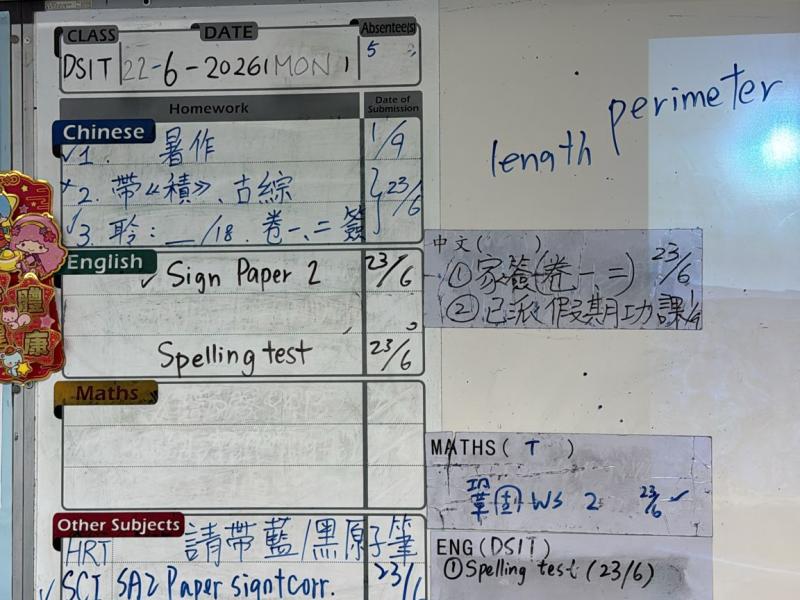 CLASS DATE Absentee(s)
DSIT 22-6-2026 (MON) 5
Homework Date of Submission
Chinese
✓1. 暑作 1/9
*2. 帶《積》、古綜 23/6
✓3. 聆：__/18. 卷一、二 簽
English
✓ Sign Paper 2 23/6
Spelling test 23/6
Maths
Other Subjects
HRT 請帶藍/黑原子筆
✓ SCI SA2 Paper sign+corr. 23/6
length perimeter
中文( )
① 家簽(卷一、二) 23/6
② 已派假期功課 1/9
MATHS( T )
WS 2 23/6 ✓
ENG(DSIT)
①Spelling test (23/6)
體
康